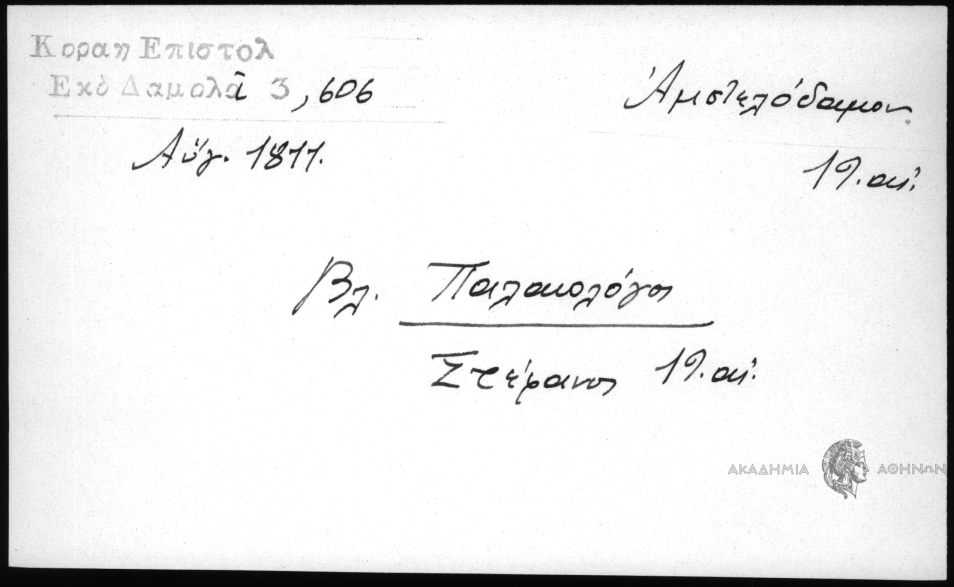 Κοραη Επιστολ
Εκδ Δαμολᾶ 3, 606
Ἀμστελόδαμον
Αὔγ. 1811.
19. αἰ.
Βλ. Παλαιολόγος
Στέφανος 19. αἰ.
ΑΚΑΔΗΜΙΑ ΑΘΗΝΩΝ